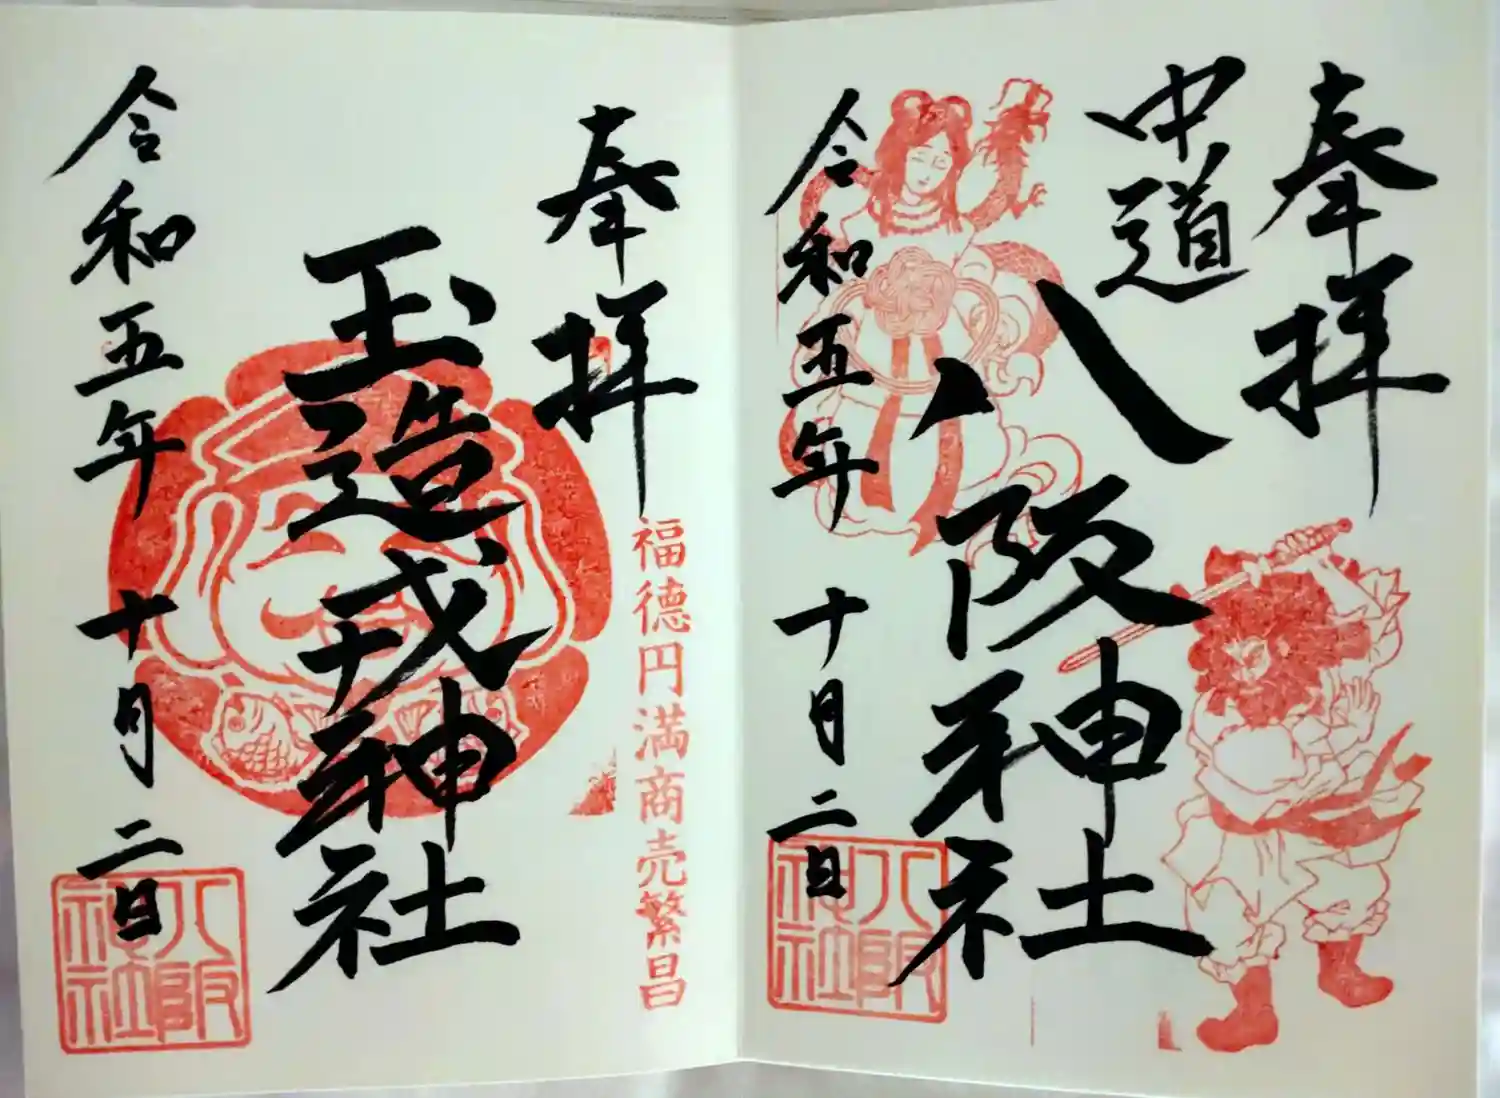 奉拝
中道
八阪神社
令和五年
十月二日
八阪神社
奉拝
福徳円満商売繁昌
玉造戎神社
令和五年
十月二日
八阪神社